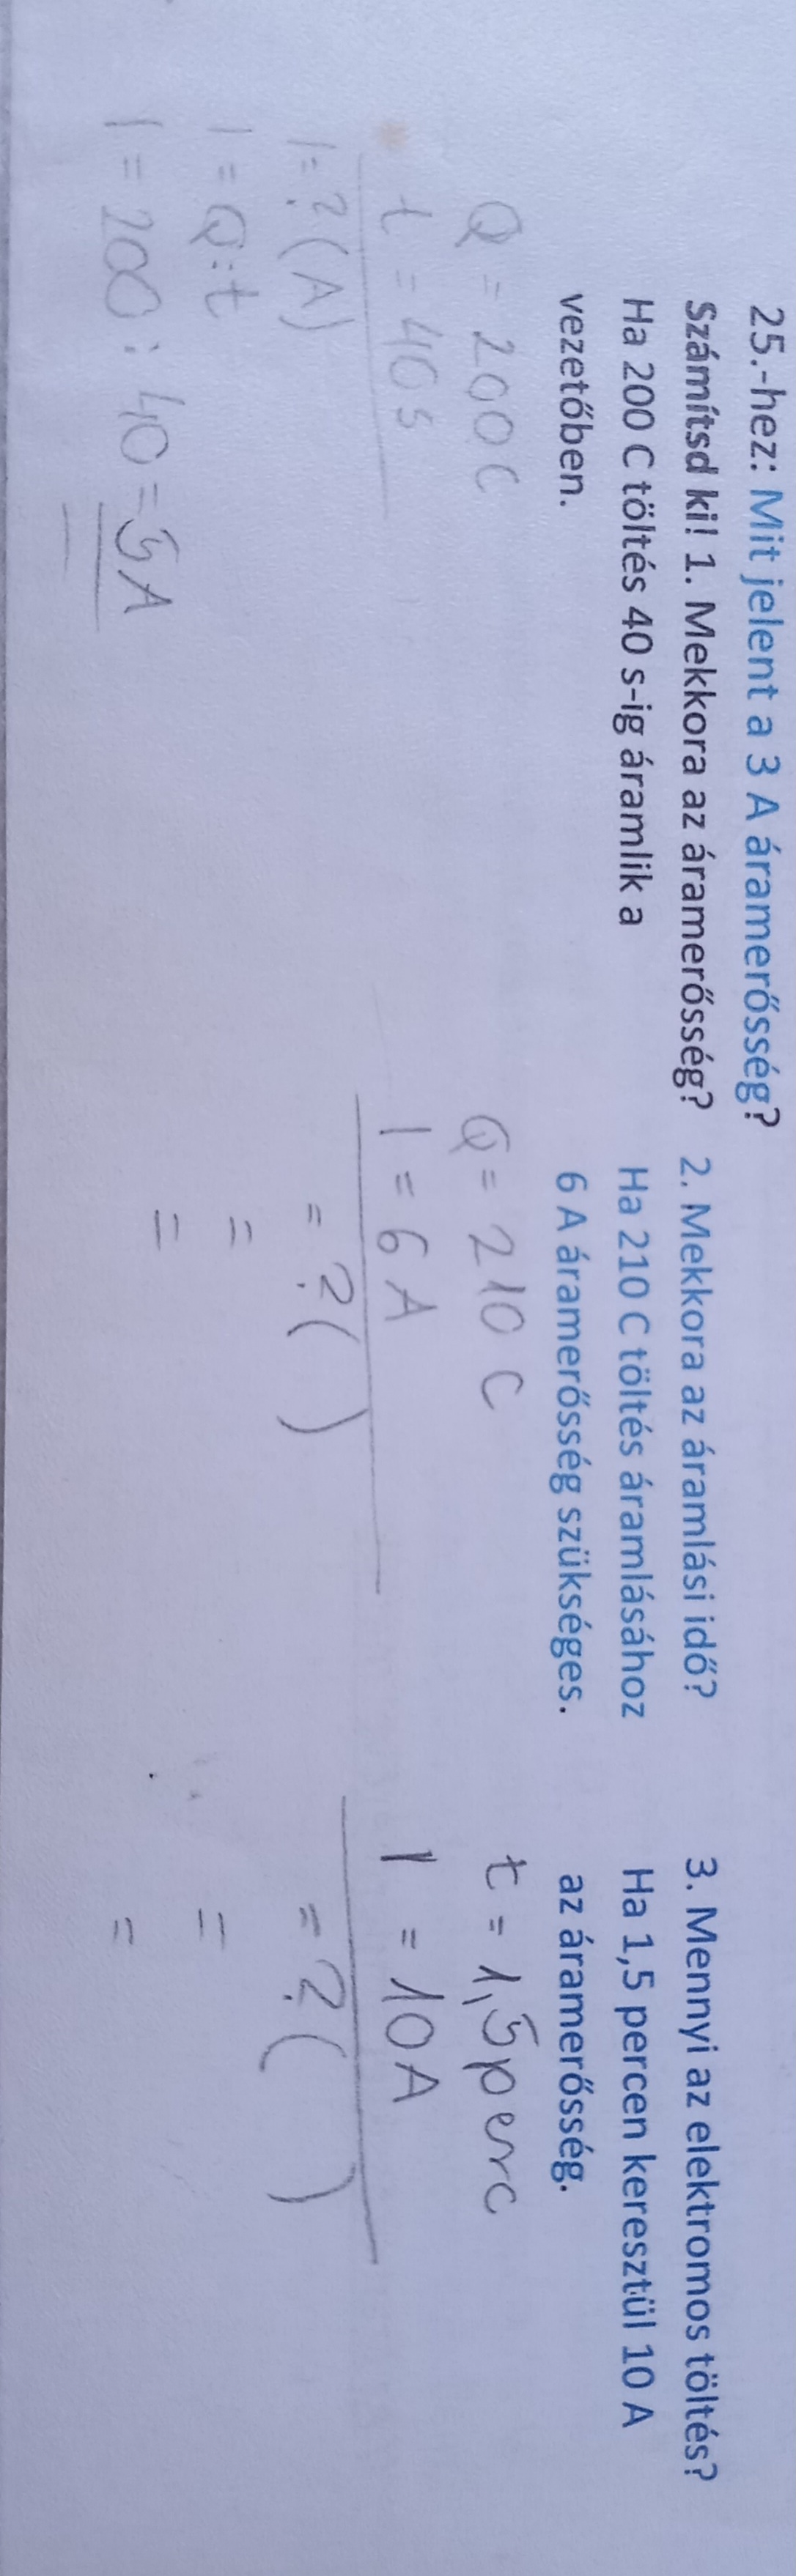 25.-hez: Mit jelent a 3 A áramerősség?
Számítsd ki! 1. Mekkora az áramerősség?
Ha 200 C töltés 40 s-ig áramlik a
vezetőben.
Q = 200C
t = 40s
I = ? (A)
I = Q:t
I = 200 : 40 = 5A
2. Mekkora az áramlási idő?
Ha 210 C töltés áramlásához
6 A áramerősség szükséges.
Q = 210 C
I = 6 A
= ? ( )
=
=
3. Mennyi az elektromos töltés?
Ha 1,5 percen keresztül 10 A
az áramerősség.
t = 1,5 perc
I = 10A
= ? ( )
=
=